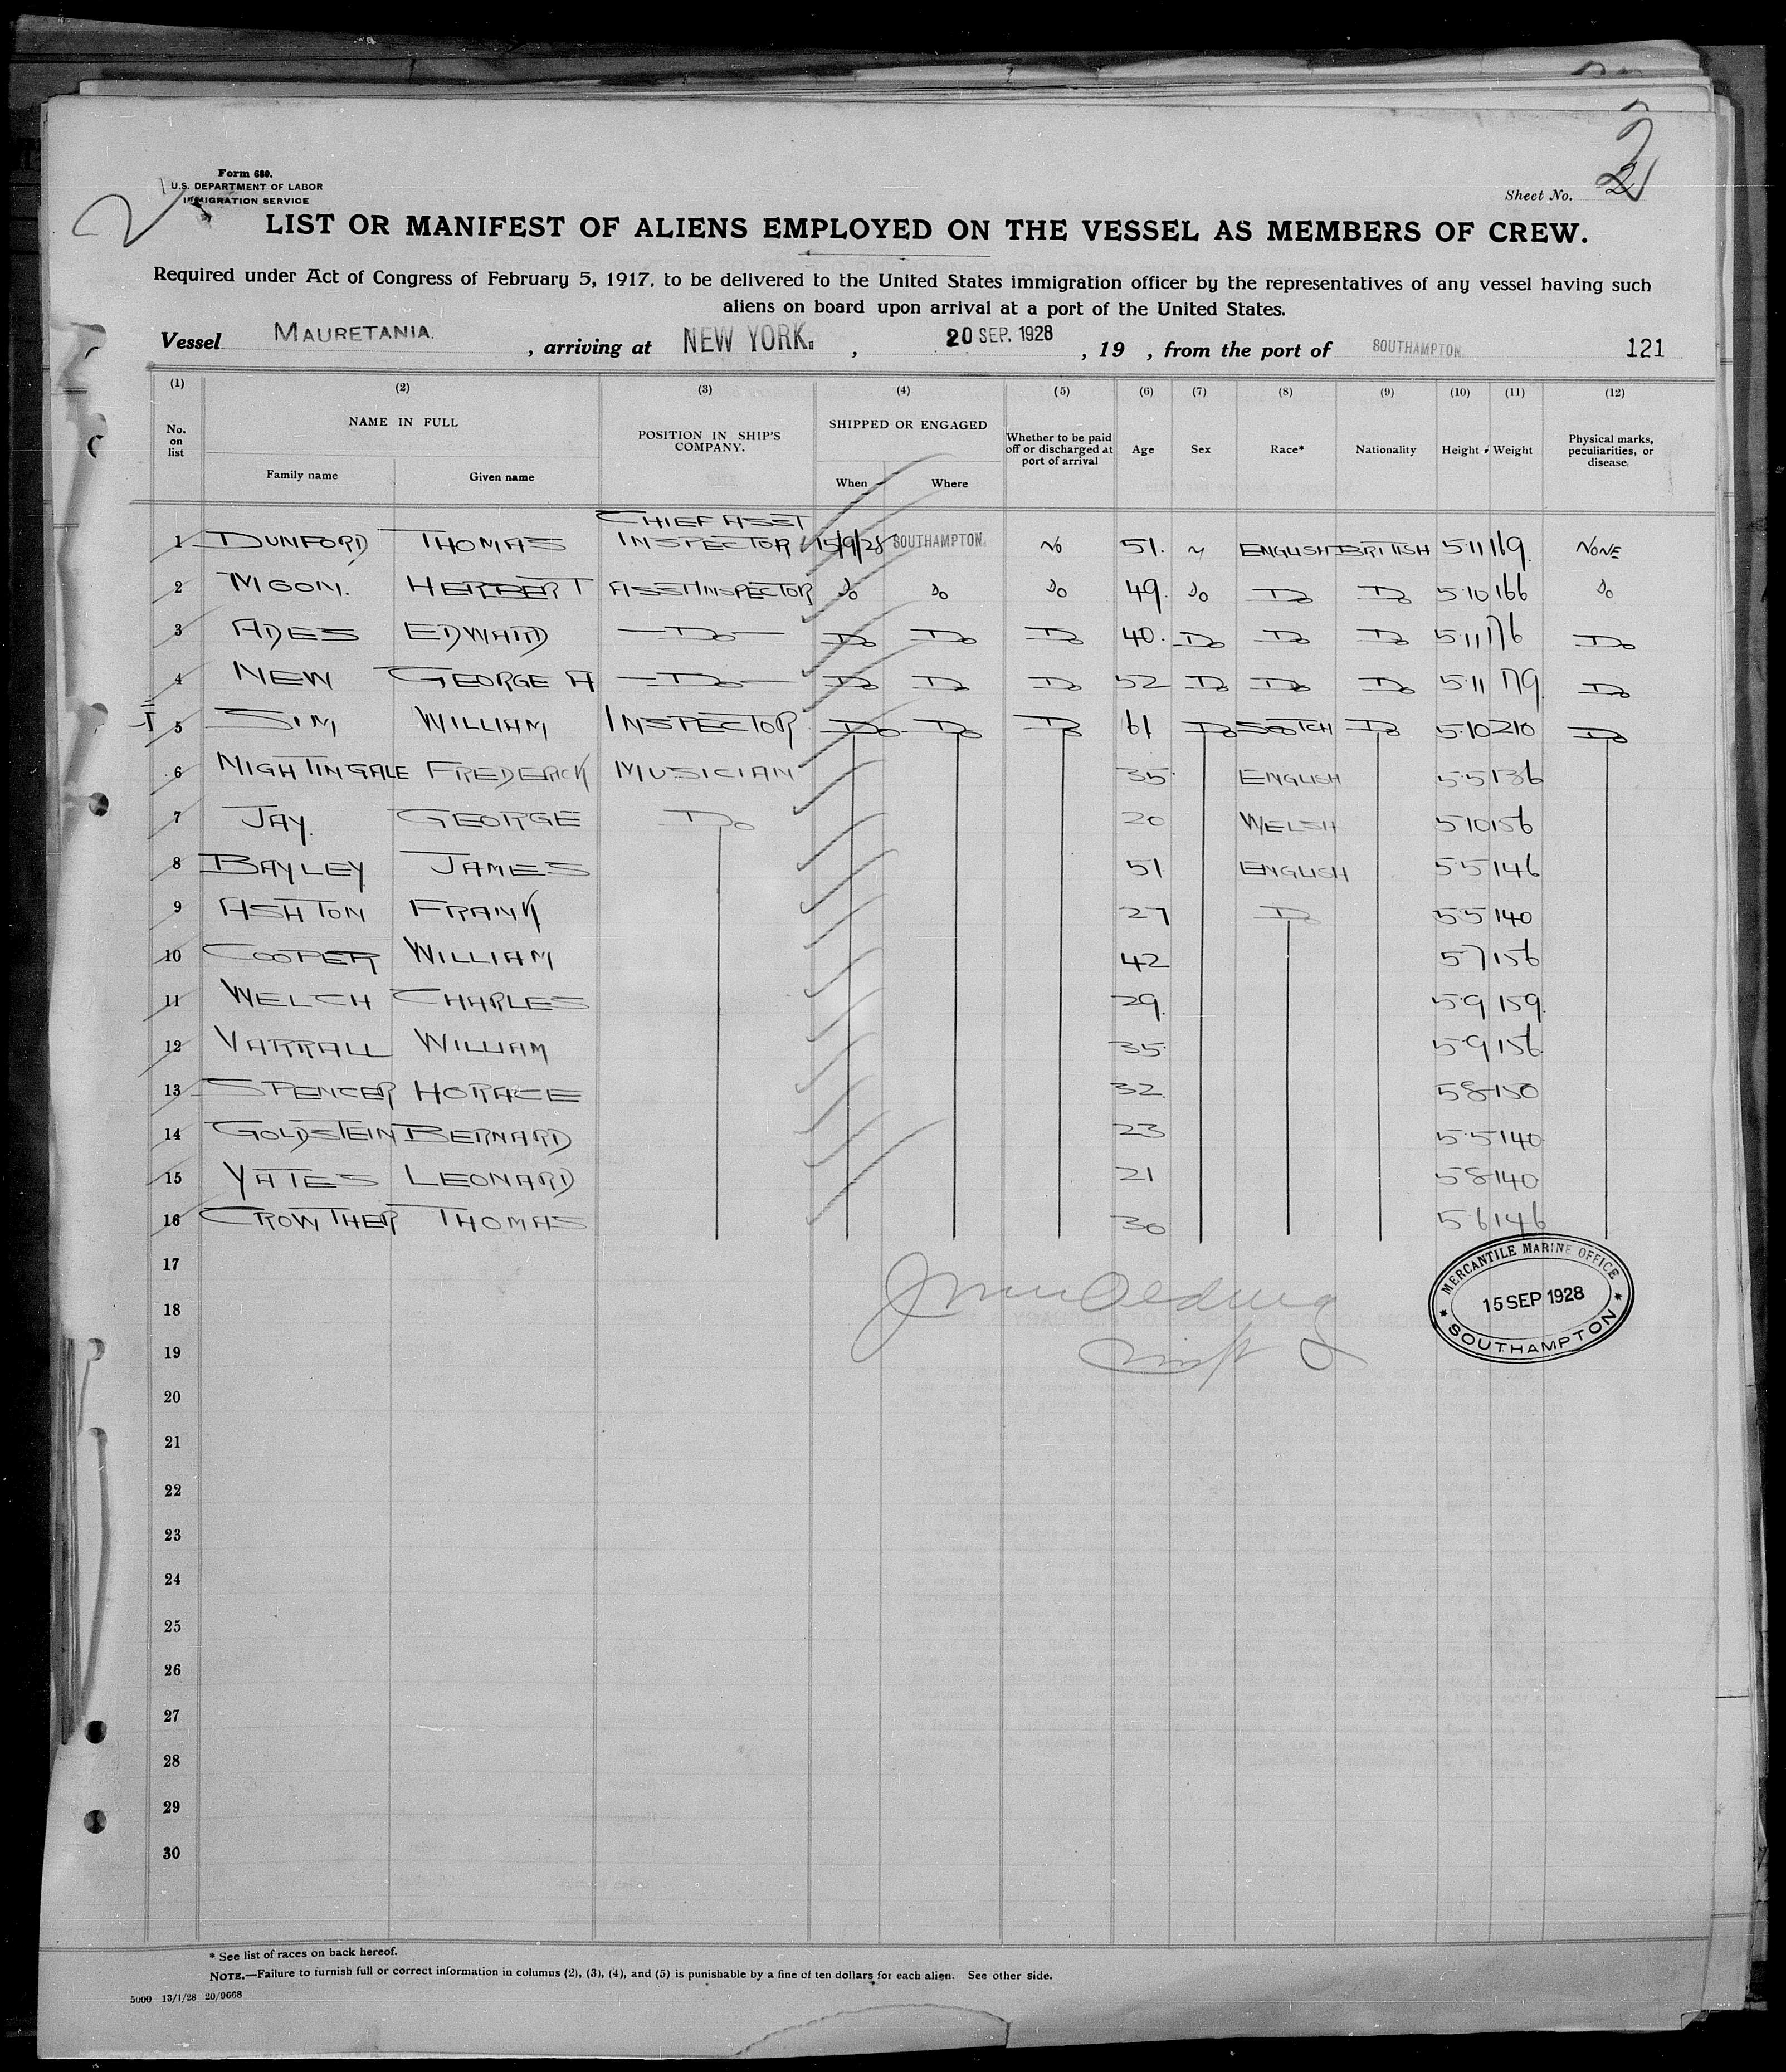 Form 680.
U.S. DEPARTMENT OF LABOR
IMMIGRATION SERVICE
Sheet No. 2
LIST OR MANIFEST OF ALIENS EMPLOYED ON THE VESSEL AS MEMBERS OF CREW.
Required under Act of Congress of February 5, 1917, to be delivered to the United States immigration officer by the representatives of any vessel having such
aliens on board upon arrival at a port of the United States.
Vessel MAURETANIA. , arriving at NEW YORK. , 20 SEP. 1928 , 19 , from the port of SOUTHAMPTON. 121
(1) (2) (3) (4) (5) (6) (7) (8) (9) (10) (11) (12)
No. on list NAME IN FULL Family name Given name POSITION IN SHIP'S COMPANY. SHIPPED OR ENGAGED When Where Whether to be paid off or discharged at port of arrival Age Sex Race* Nationality Height Weight Physical marks, peculiarities, or disease.
CHIEF ASST
1 DUNFORD THOMAS INSPECTOR 15/9/28 SOUTHAMPTON. NO 51. M ENGLISH BRITISH 5.11 169. NONE
2 MOON. HERBERT ASST INSPECTOR Do Do Do 49. Do Do Do 5.10 166 Do
3 ADES EDWARD Do Do Do Do 40. Do Do Do 5.11 176 Do
4 NEW GEORGE A Do Do Do Do 52 Do Do Do 5.11 179. Do
5 SIM WILLIAM INSPECTOR Do Do Do 61 Do SCOTCH Do 5.10 210 Do
6 NIGHTINGALE FREDERICK MUSICIAN 35. ENGLISH 5.5 136
7 JAY. GEORGE Do 20 WELSH 5.10 156
8 BAYLEY JAMES 51. ENGLISH 5.5 146
9 ASHTON FRANK 27 Do 5.5 140
10 COOPER WILLIAM 42 5.7 156
11 WELCH CHARLES 29. 5.9 159.
12 VARRALL WILLIAM 35. 5.9 156.
13 SPENCER HORACE 32. 5.8 150
14 GOLDSTEIN BERNARD 23 5.5 140
15 YATES LEONARD 21 5.8 140
16 CROWTHER THOMAS 30 5.6 146
17
18
19
20
21
22
23
24
25
26
27
28
29
30
MERCANTILE MARINE OFFICE
15 SEP 1928
SOUTHAMPTON
* See list of races on back hereof.
NOTE.—Failure to furnish full or correct information in columns (2), (3), (4), and (5) is punishable by a fine of ten dollars for each alien. See other side.
5000 13/1/28 20/9668